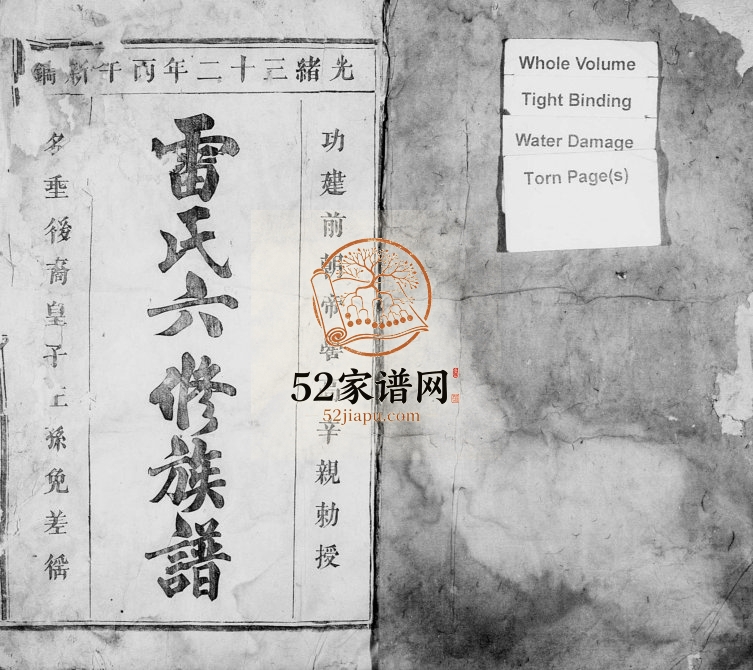 光緒三十二年丙午新鐫
功建前朝帝嚳高辛親勅授
雷氏六修族譜
名垂後裔皇子王孫免差徭
Whole Volume
Tight Binding
Water Damage
Torn Page(s)
52家谱网
52jiapu.com